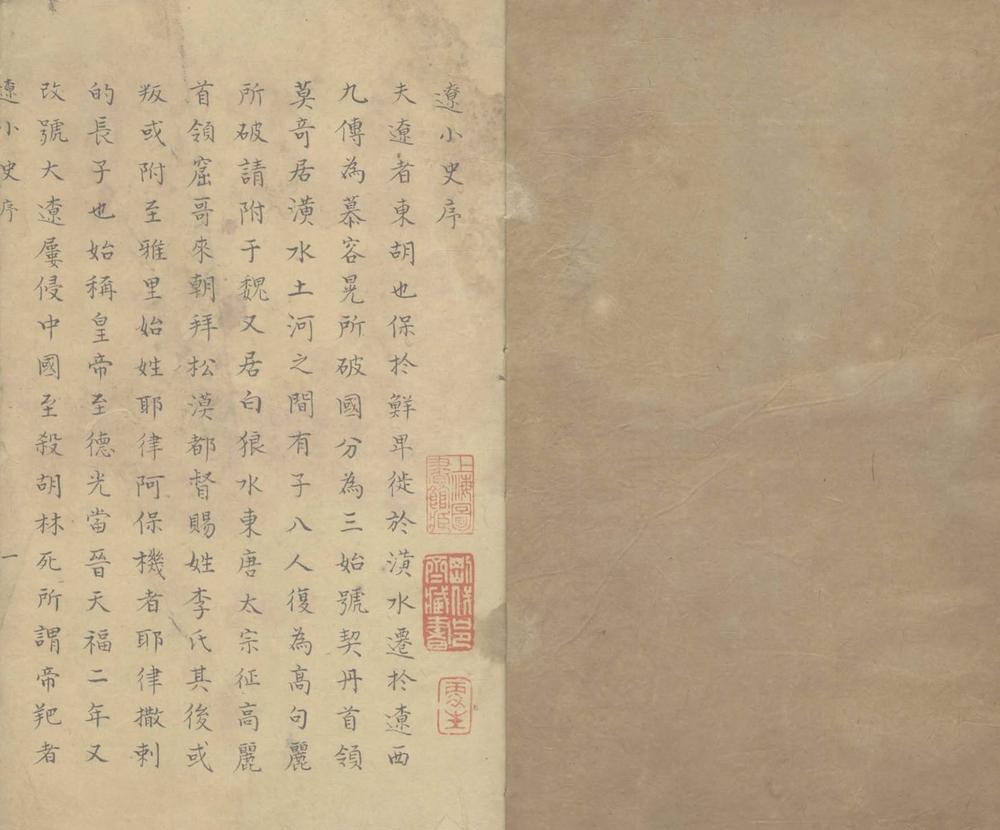 遼小史序
夫遼者東胡也保於鮮卑徙於潢水遷於遼西
九傳為慕容晃所破國分為三始號契丹首領
莫奇居潢水土河之間有子八人復為高句麗
所破請附于魏又居白狼水東唐太宗征高麗
首領窟哥來朝拜松漠都督賜姓李氏其後或
叛或附至雅里始姓耶律阿保機者耶律撒剌
的長子也始稱皇帝至德光當晉天福二年又
改號大遼屢侵中國至殺胡林死所謂帝羓者
遼小史序
一
上海圖書館藏